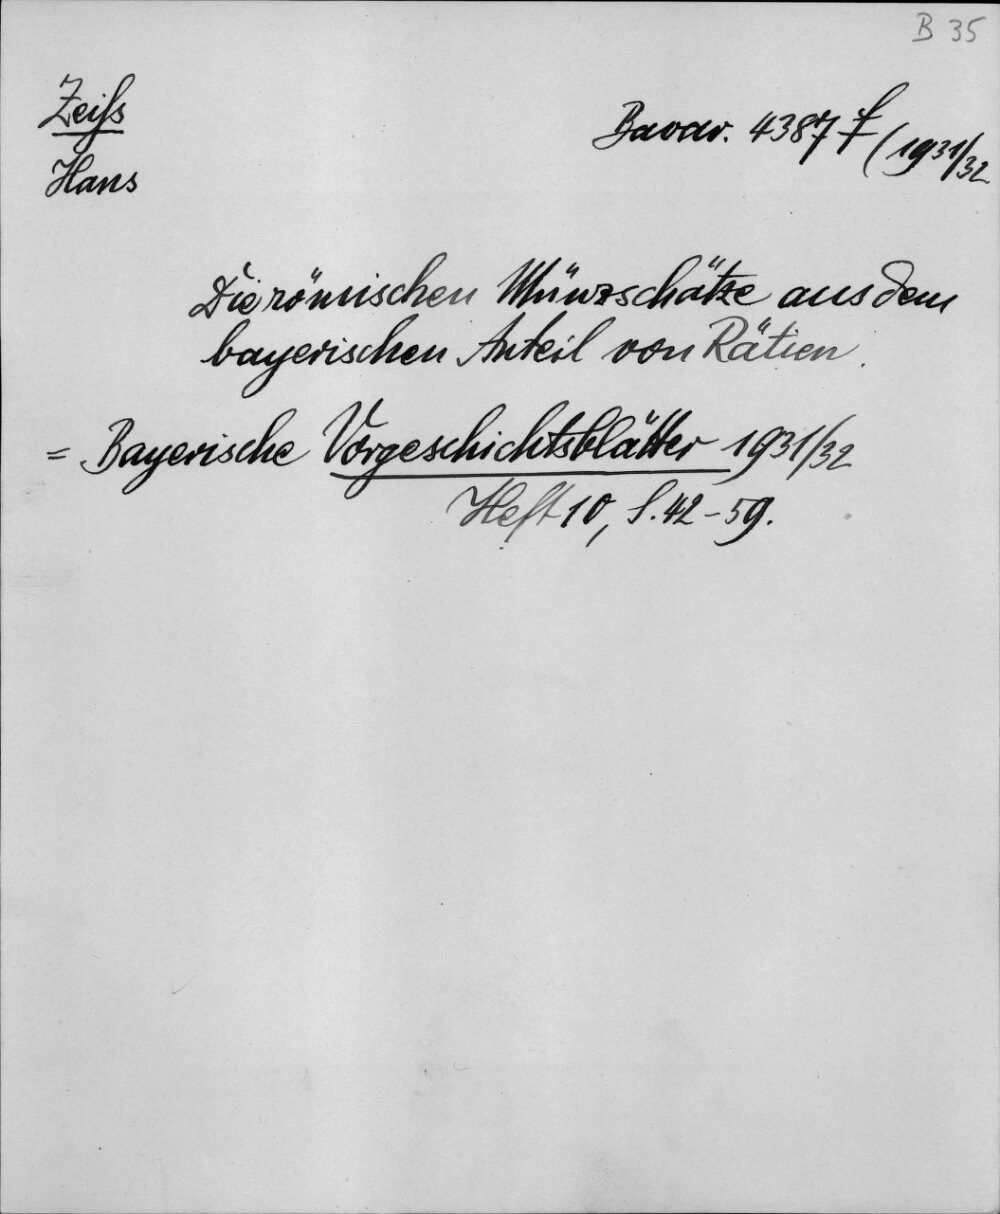 B 35
Zeiss
Bavar. 4387 f (1931/32
Hans
Die römischen Münzschätze aus dem
bayerischen Anteil von Rätien.
= Bayerische Vorgeschichtsblätter 1931/32
Heft 10, S. 42-59.